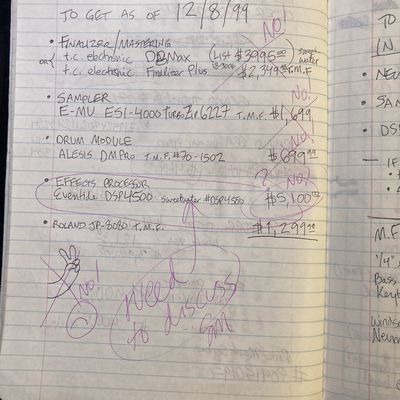 TO GET AS OF 12/8/99
No!
• FINALIZER/MASTERING
t.c. electronic DBMax (List $3995.00 sweetwater
OR/ t.c. electronic Finalizer Plus $2,349 T.M.F
No!
• SAMPLER
E-MU ESI-4000 TURBO Zip 6227 T.M.F. $1,699
No!
• DRUM MODULE
ALESIS DMPro T.M.F. #70-1502 $699.00
? No!
• EFFECTS PROCESSOR
Eventide DSP4500 sweetwater #DSP4500 $5,100.00
• ROLAND JP-8080 T.M.F. $1,299.00
No!
need
to discuss
TO
(N.
• NEU
• SAM
• DSP
- IF
M.F.
1/4"
Bass
Keyb
Windsc
Neum